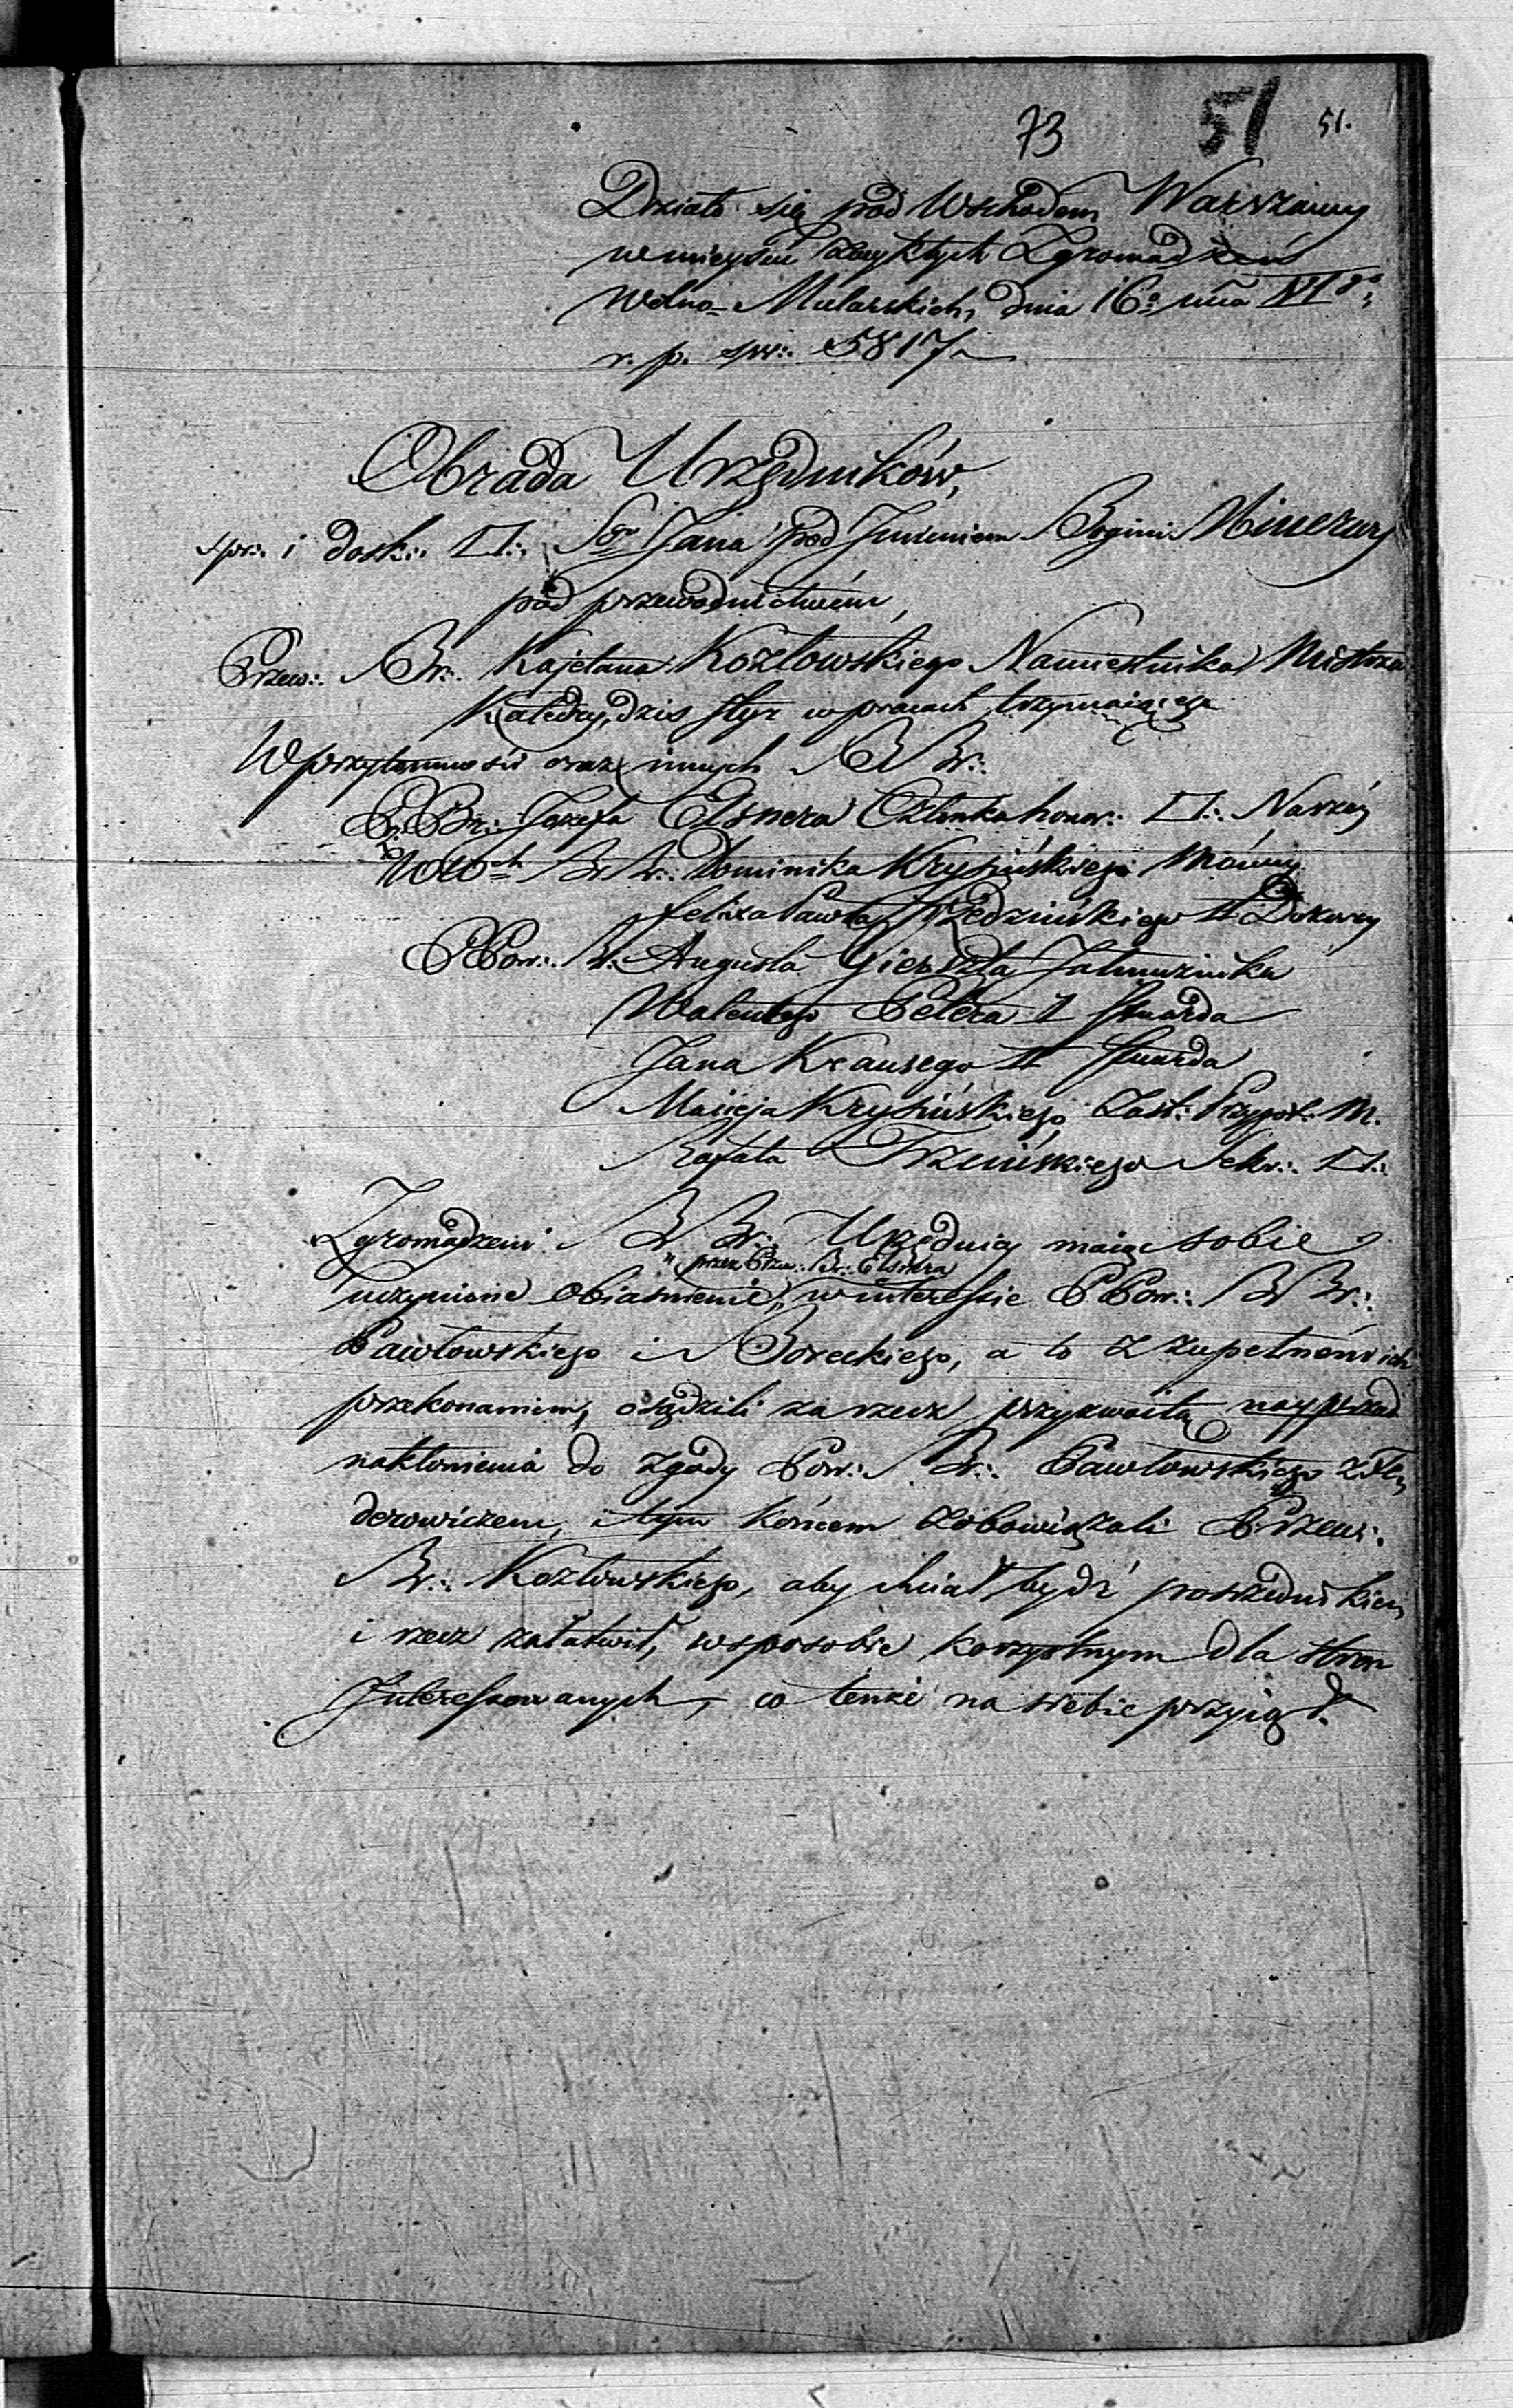 73 51 51.
Działo się pod Wschodem Warszawy
w mieyscu zwykłych Zgromadzeń
Wolno-Mularskich, dnia 16º mca VIº
r. p. św:. 5817
Obrada Urzędników,
spr:. i dosk:. □:. Sgo Jana pod Jmieniem Bogini Minerwy
pod przewodnictwem,
Przew:. Br:. Kajetana Kozłowskiego Namiestnika Mistrza
Katedry, dziś ster w pracach trzymaiącego
W przytomności oraz innych B Br:.
P. Br:. Józefa Elsnera Członka honor:. □:. Naszéj
B Br:. Dominika Krysińskiego Mówcy
Felixa Pawła II Dozorcy
PPow:. Br:. Augusta Gierszta Jałmużnika
Walentego Petera I Stuarda
Jana Krausego II Stuarda
Macieja Krysińskiego Zast:. Przygot:. M.
Rafała Sekr:. □:.
Zgromadzeni B Br:. Urzędnicy maiąc sobie
" przez Przew:. Br:. Elsnera
uczynione obiaśnienie " w interessie PPow:. B Br:.
Pawłowskiego i Boreckiego, a to z zupełném ich
przekonaniem, osądzili za rzecz przyzwoitą nayprzód
nakłonienia do zgody Pow:. Br:. Pawłowskiego z
derowiczem, i tym końcem zobowiązali Przew:.
Br:. Kozłowskiego, aby chciał bydź pośrzednikiem
i rzecz załatwił, w sposobie korzystnym dla stron
Jnteressowanych, co tenże na siebie przyiął.